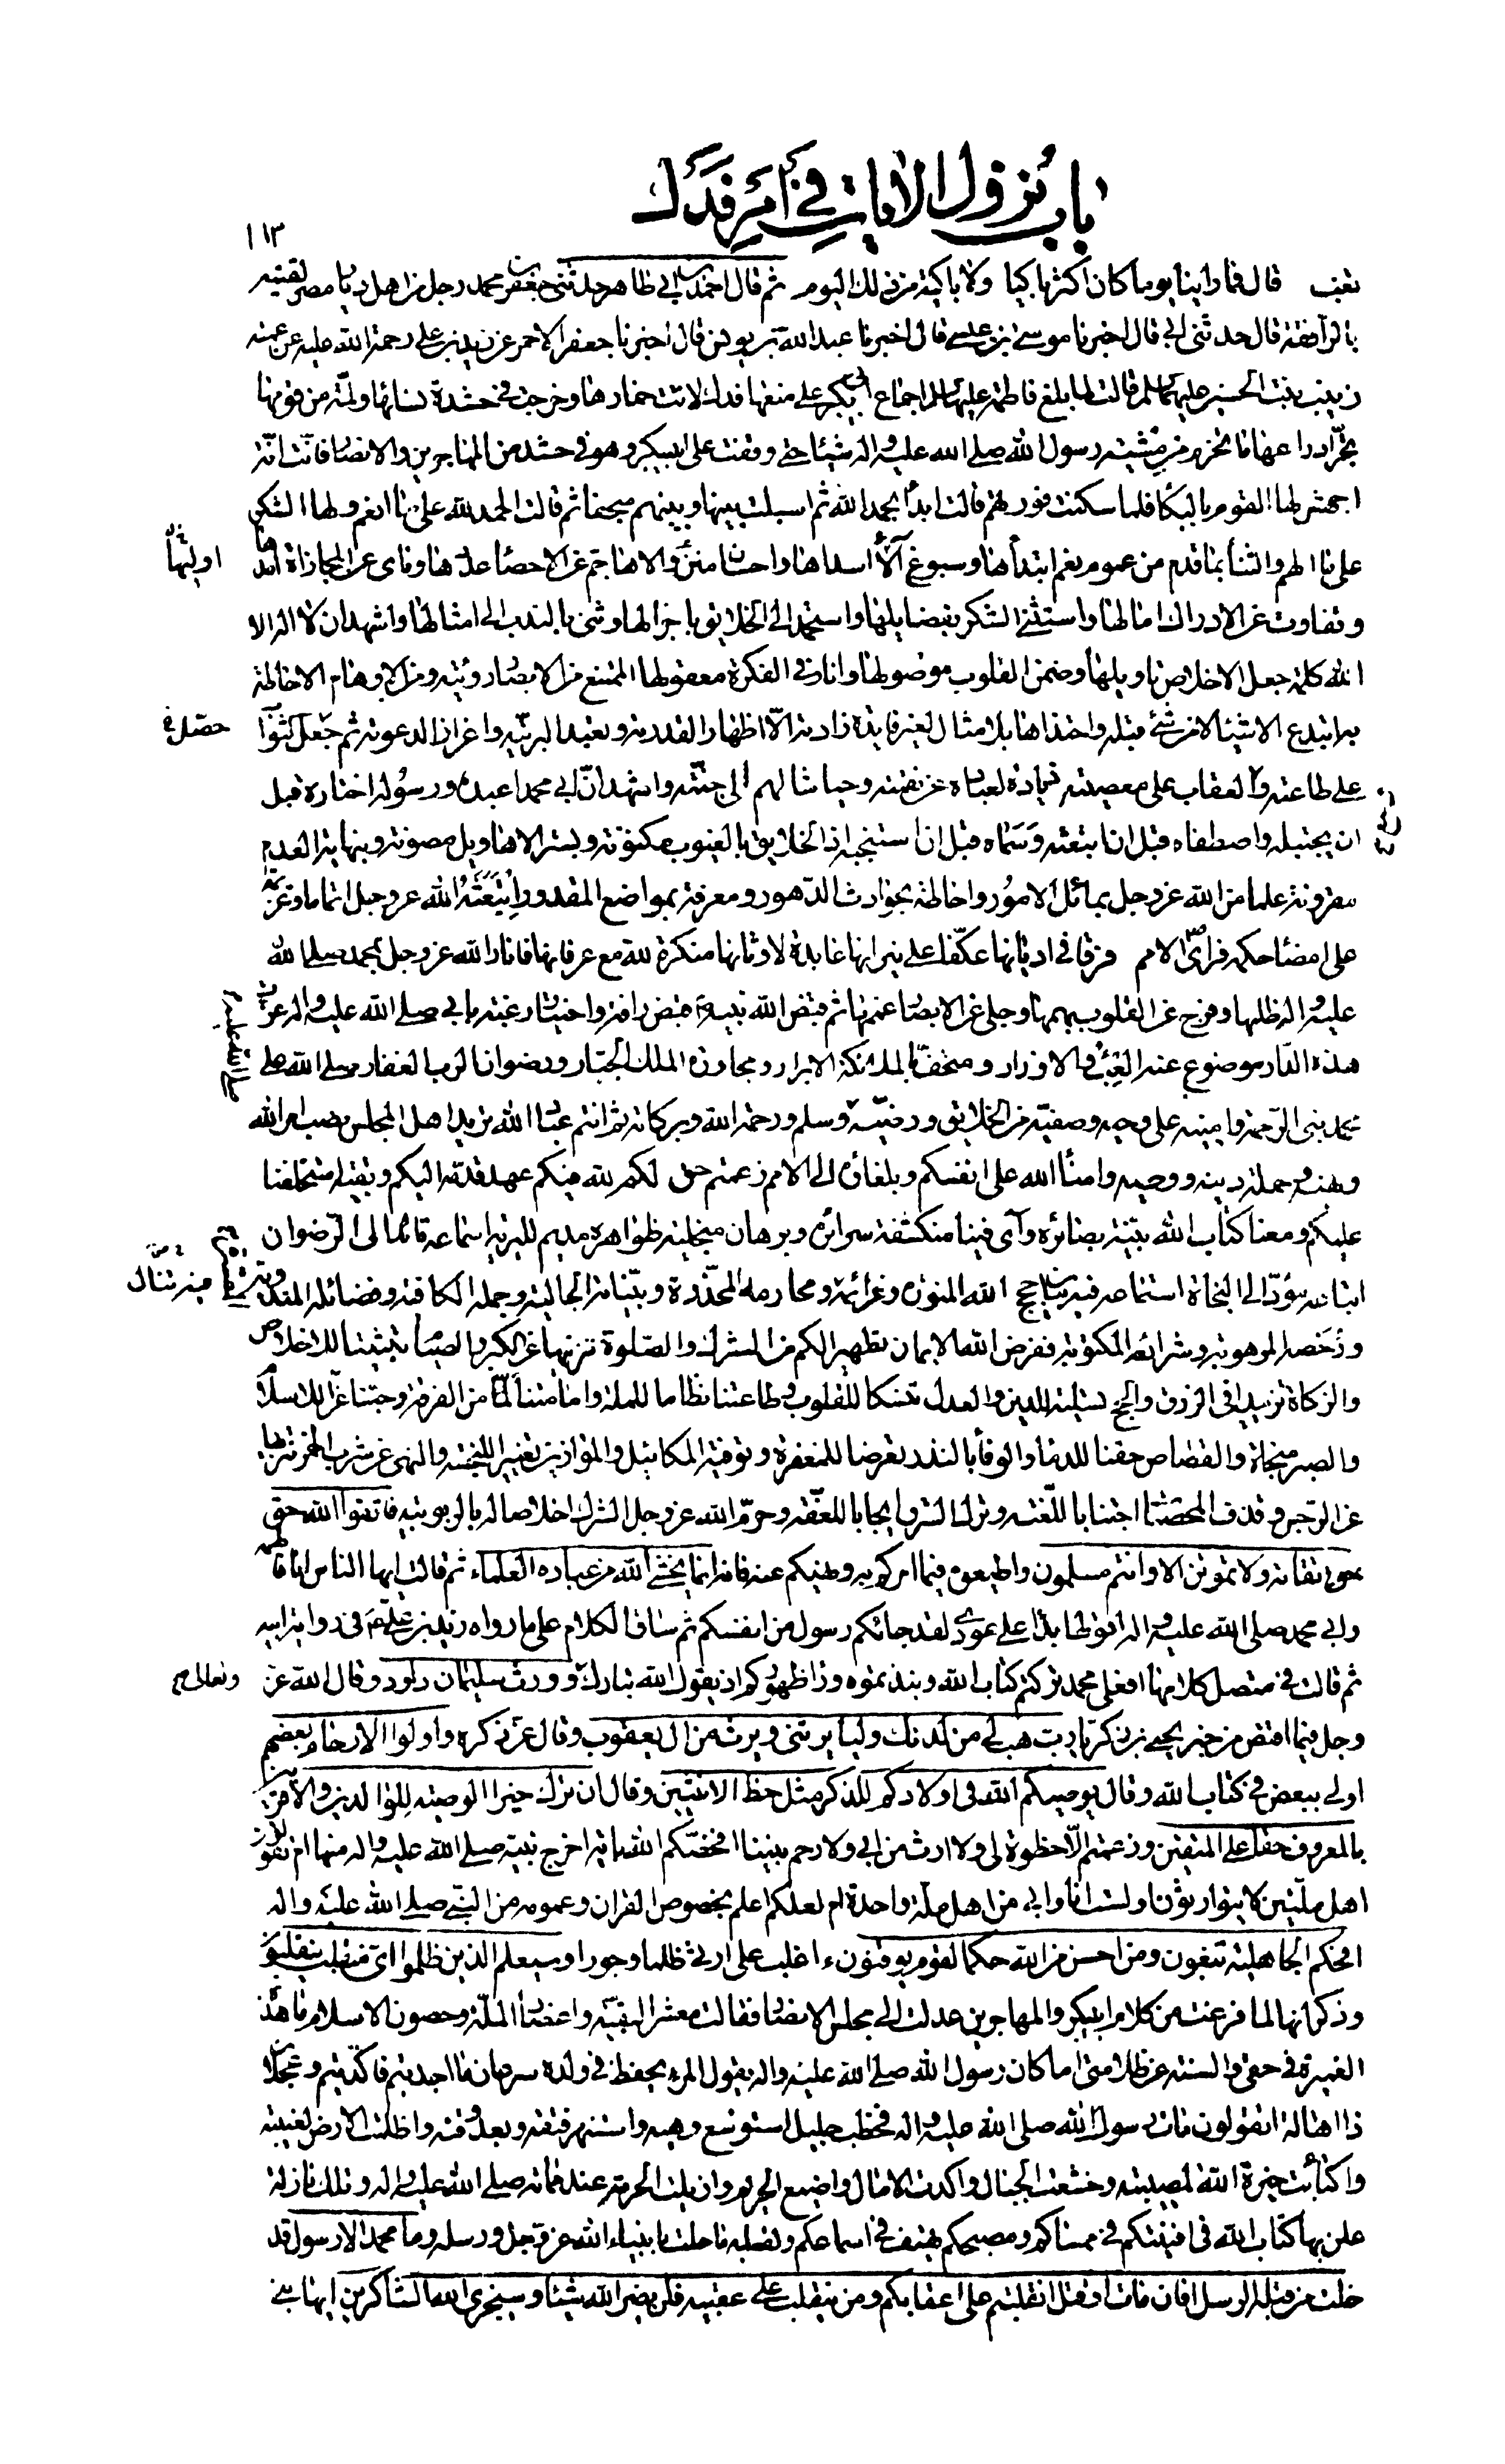 باب نزول الايات في أمر فدك
١١٣
تغب قال فما راينا يوما كان اكثر باكيا ولا باكية من ذلك اليوم ثم قال احمد بن ابي طاهر حدثني جعفر بن محمد رجل من اهل ديار مصر لقيته
بالرافقة قال حدثني ابي قال اخبرنا موسى بن عيسى قال اخبرنا عبد الله بن يونس قال اخبرنا جعفر الاحمر عن زيد بن علي رحمة الله عليه عن عمته
زينب بنت الحسين عليهما السلم قالت لما بلغ فاطمة عليها السلم اجماع ابي بكر على منعها فدك لاثت خمارها وخرجت في حشدة نسائها ولمة من قومها
تجر ادراعها ما تخرم من مشية رسول الله صلى الله عليه واله شيئا حتى وقفت على ابي بكر وهو في حشد من المهاجرين والانصار فانت انة
اجهش لها القوم بالبكا فلما سكنت فورتهم قالت ابدأ بحمد الله ثم اسبلت بينها وبينهم سجفا ثم قالت الحمد لله على ما انعم وله الشكر
على ما الهم والثنا بما قدم من عموم نعم ابتدأها وسبوغ آلاء اسداها واحسان منن والاها جم عن الاحصا عددها وناى عن المجازاة امدها
اوليها
وتفاوت عن الادراك امالها واستثنى الشكر بفضايلها واستحمد الى الخلايق باجزالها وثنى بالندب الى امثالها واشهد ان لا اله الا
الله كلمة جعل الاخلاص تاويلها وضمن القلوب موصولها وانار في الفكرة معقولها الممتنع من الابصار رؤيته ومن الاوهام الاحاطة
به ابتدع الاشيا لا من شئ قبله واحتذاها بلا مثال لغير فايدة زادته الا اظهارا لقدرته وتعبدا لبريته واعزازا لدعوته ثم جعل الثواب
على طاعته والعقاب على معصيته زيادة لعباده عن نقمته وحياشا لهم الى جنته واشهد ان ابي محمدا عبده ورسوله اختاره قبل
ان يجتبله واصطفاه قبل ان ابتعثه وسماه قبل ان استنجبه اذ الخلايق بالغيوب مكنونة وبستر الاهاويل مصونة وبنهاية العدم
مقرونة علما من الله عز وجل بمائل الامور واحاطة بحوادث الدهور ومعرفة بمواضع المقدور ابتعثه الله عز وجل اتماما وعزيمة
على امضا حكمه فراى الامم فرقا في اديانها عكفا على نيرانها عابدة لاوثانها منكرة لله مع عرفانها فانار الله عز وجل بمحمد صلى الله
عليه واله ظلمها وفرج عن القلوب بهمها وجلى عن الابصار غممها ثم قبض الله نبيه قبض رافة واختيار رغبة بابي صلى الله عليه واله عن
هذه الدار موضوع عنه العبء والاوزار ومحتف بالملائكة الابرار ومجاورة الملك الجبار ورضوان الرب الغفار صلى الله على
محمد نبي الرحمة وامينه على وحيه وصفيه من الخلايق ورضيه وسلم ورحمة الله وبركاته ثم انتم عباد الله تريد اهل المجلس نصب امر الله
ونهيه وحملة دينه ووحيه وامنا الله على انفسكم وبلغاؤه الى الامم زعمتم حق لكم لله فيكم عهد قدمه اليكم وبقية استخلفنا
عليكم ومعنا كتاب الله بينة بصائره وآى فينا منكشفة سرائره وبرهان منجلية ظواهره مديم للبرية اسماعه قائدا الى الرضوان
اتباعه مؤد الى النجاة استماعه فيه بيان حجج الله المنورة وعزائمه ومحارمه المحذرة وبيناته الجالية وجمله الكافية وفضائله المندوبة
فيه تنال
ورخصه الموهوبة وشرائعه المكتوبة ففرض الله الايمان تطهيرا لكم من الشرك والصلوة تنزيها عن الكبر والصيام تثبيتا للاخلاص
والزكاة تزييدا في الرزق والحج تسلية للدين والعدل تنسكا للقلوب وطاعتنا نظاما للملة وامامتنا لما من الفرقة وحبنا عزا للاسلام
والصبر منجاة والقصاص حقنا للدما والوفا بالنذر تعرضا للمغفرة وتوفية المكائيل والموازين تغييرا للبخسة والنهي عن شرب الخمر تنزيها
عن الرجس وقذف المحصنات اجتنابا للعنة وترك السرق ايجابا للعفة وحرم الله عز وجل الشرك اخلاصا له بالربوبية فاتقوا الله حق
تقاته ولا تموتن الا وانتم مسلمون واطيعوه فيما امركم به ونهيكم عنه فانه انما يخشى الله من عباده العلماء ثم قالت ايها الناس انا فاطمة
وابي محمد صلى الله عليه واله اقولها بدا على عودى لقد جائكم رسول من انفسكم ثم ساق الكلام على ما رواه زيد بن علي في رواية ابيه
ثم قالت في متصل كلامها افعلى محمد تركتم كتاب الله ونبذتموه وراء ظهوركم اذ يقول الله تبارك وورث سليمان داود وقال الله عز
وتعالى
وجل فيما اقتص من خبر يحيى بن زكريا رب هب لي من لدنك وليا يرثني ويرث من ال يعقوب وقال عز ذكره واولوا الارحام بعضهم
اولى ببعض في كتاب الله وقال يوصيكم الله في اولادكم للذكر مثل حظ الانثيين وقال ان ترك خيرا الوصية للوالدين والاقربين
بالمعروف حقا على المتقين وزعمتم الا حظوة لي ولا ارث من ابي ولا رحم بيننا افخصكم الله باية اخرج نبيه صلى الله عليه واله منها ام تقولون
اهل ملتين لا يتوارثون اولست انا وابي من اهل ملة واحدة ام لعلكم اعلم بخصوص القران وعمومه من النبي صلى الله عليه واله
افحكم الجاهلية تبغون ومن احسن من الله حكما لقوم يوقنون ءاغلب على ارثي ظلما وجورا وسيعلم الذين ظلموا اى منقلب ينقلبون
وذكر انها لما فرغت من كلام ابي بكر والمهاجرين عدلت الى مجلس الانصار فقالت معشر البقية واعضاد الملة وحصون الاسلام ما هذه
الغميزة في حقي والسنة عن ظلامتي اما كان رسول الله صلى الله عليه واله يقول المرء يحفظ في ولده سرعان ما اجدبتم فاكديتم وعجلان
ذا اهالة اتقولون مات رسول الله صلى الله عليه واله فخطب جليل استوسع وهيه واستنهر فتقه وبعد وقته واظلمت الارض لغيبته
واكتأبت خيرة الله لمصيبته وخشعت الجبال واكدت الامال واضيع الحريم واذيلت الحرمة عند مماته صلى الله عليه واله وتلك نازلة
علن بها كتاب الله في افنيتكم في ممساكم ومصبحكم يهتف في اسماعكم ولقبله ما حلت بانبياء الله عز وجل ورسله وما محمد الا رسول قد
خلت من قبله الرسل افان مات او قتل انقلبتم على اعقابكم ومن ينقلب على عقبيه فلن يضر الله شيئا وسيجزى الله الشاكرين ايها بني